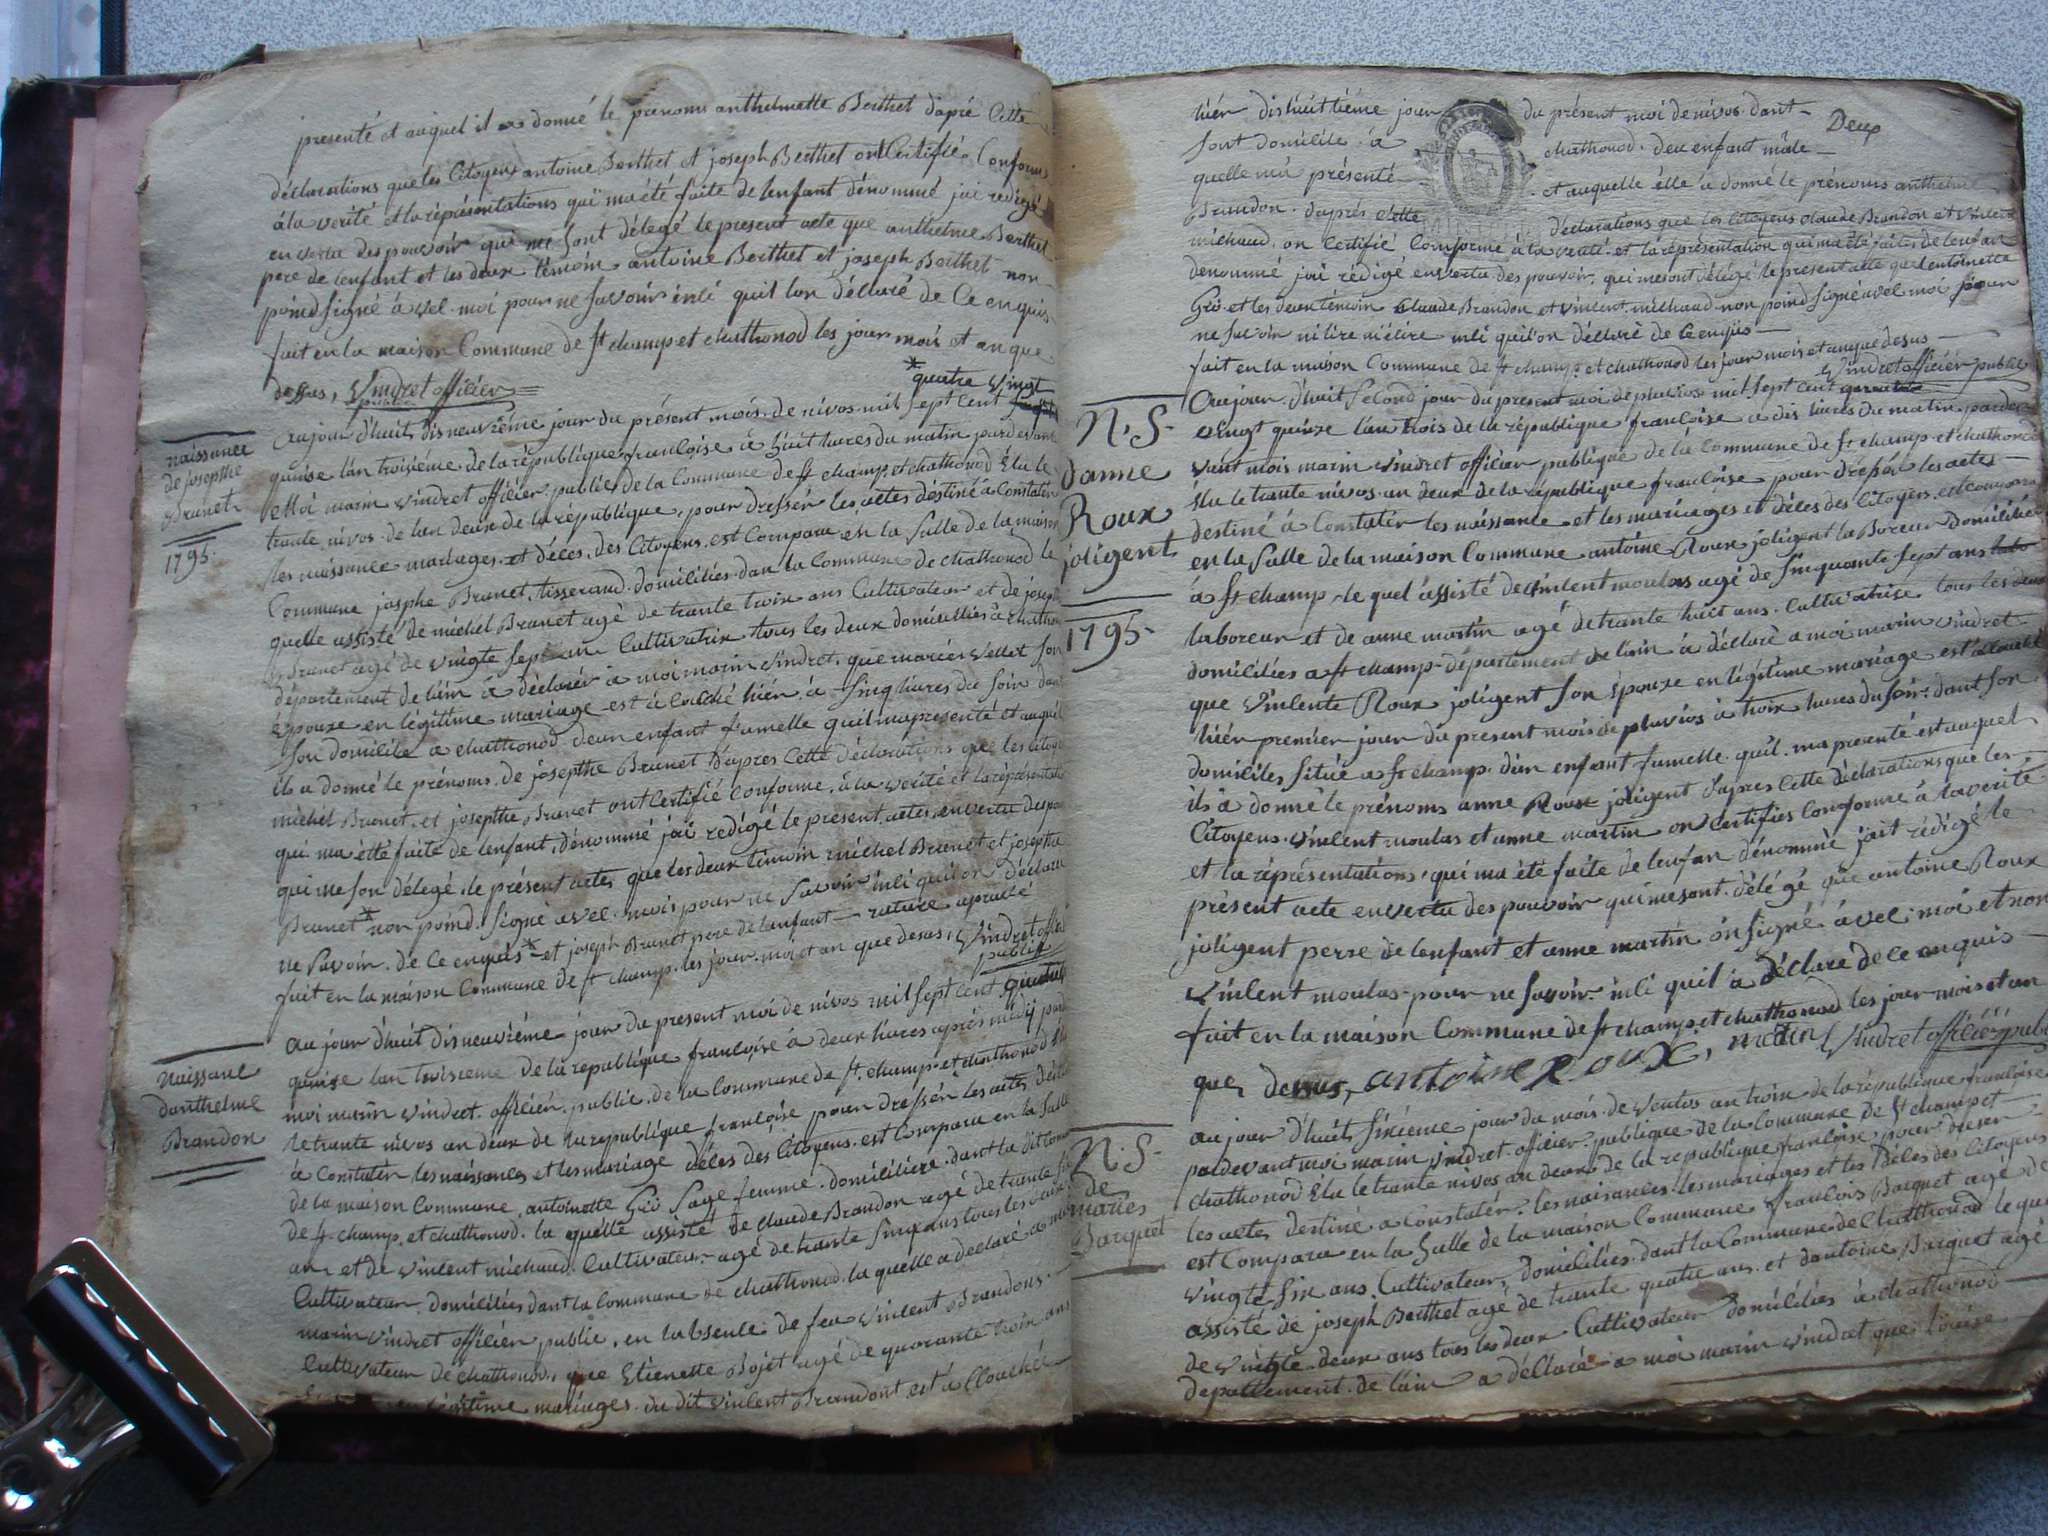 presenté et auquel il a donné le prenoms anthelmette Berthet dapré Cette
déclarations que les Citoyens antoine Berthet et joseph Berthet on Certifié Conforme
à la verité et la réprésentations qui ma été faite de lenfant dénommé jai redigé
en vertu des pouvoir qui me sont délegé le present acte que anthelme Berthet
pere de lenfant et les deux témoin antoine Berthet et joseph Berthet non
poind signé avel moi pour ne savoir inli quil lon déclaré de Ce enquis
fait en la maison Commune de st champ et chathonod les jour mois et an que
desus, Vindret officiér
quatre vingt
naissance
de josepthe
Brunet
1795.
aujour d'huit disneuvième jour du présent mois de nivos mil sept cent
quinse lan troisiéme de la république francloise à huit hures du matin pardevant
moi marin vindret officiér public de la Commune de st champ et chathonod Elu le
trante nivos de lan deux de la république, pour dressér les actes destiné a Constatér
les naissance mariages et déces des Citoyens est Comparu en la salle de la maison
Commune josphe Brunet tisserand domiciliés dan la Commune de chathonod le
quelle assisté de michel Brunet agé de trante troix ans Cultivateur et de joseph
Brunet agé de vingte sept an Cultivatrix tous les deux domiselliés à chathon
département de lain à déclarér à moi marin vindret que mariée vellet son
épouze en légitime mariage est à couché hiér à sinq hures du soir dan
son domicile a chathonod deun enfant fumelle quil mapresenté et auquel
ils a donné le prénoms de josepthe Brunet Dapres Cette déclarations que les Citoye
michel Brunet et josepthe Brunet ont Certifié Conforme à la verité et la réprésentatio
qui ma été faite de lenfant dénommé jai redigé le présent actes en vertu du pou
qui me son délegé le présent actes que les deux témoin michel Brunet et josepthe
Brunet * non poind signé avel moi pour ne savoir inli quil on déclaré
ne savoir de Ce enquis * et joseph Brunet pere de lenfant rature aprouvé
fait en la maison Commune de st champ les jour moi et an que desus, Vindret offici
public
Naissance
danthelme
Brandon
au jour d'huit disneuviéme jour du present moi de nivos mil sept cent
quinse lan troisieme de la republique francloise à deux hures aprés midy pard
moi marin vindret officiér public de la Commune de st champ et chathonod Elu
le trante nivos an deux de la republique francloise pour dressén les actes destiné
à Constatér les naissances et les mariage déces des Citoyens est Comparu en la salle
de la maison Commune antoinette Gro sage femme domiciliere dant la dit Comm
de st champ et chathonod la quelle assisté de claude Brandon agé de trante six
an et de vincent michaud Cultivateur agé de trante sinq ans tous les deux
Cultivateur domiciliés dant la Commune de chathonod la quelle a declaré a moi
marin vindret officiér public en labsence de feu vincent Brandons
Cultivateur de chathonod que Etienette agé de quarante troix ans
en légitime mariages du dit vincent Brandont est à Clouché
Deux
hiér dishuitiéme jour du présent moi de nivos dant
sont domicile à chathonod deu enfant mâle
quelle mà présenté et auquelle élle a donné le prénoms anthelme
Brandon daprés cette déclarations que les Citoyens claude Brandon et vincent
michaud on Certifié Comforme à la verité et la réprésentation qui ma été faites de lenfan
denommé jai rédigé en vertu des pouvoir qui me sont délégé le present acte que lentoinetta
Gro et les deux témoin Claude Brandon et vincent michaud non poind signé avel moi pour
ne savoir ni lire ni écrire inli quil on déclaré de Ce enquis
fait en la maison Commune de st champ et chathonod les jour mois et an que desus
Vindret officiér public
N. S.
danne
Roux
joligent
1795.
Au jour d'huit second jour du present moi de pluvios mil sept cent
vingt quinse l'an trois de la république francloise a dis hures du matin parde
vant mois marin vindret officiér publique de la Commune de st champ et chathonod
élu le trante nivos an deux de la république francloise pour dressén les actes
destiné à Constatér les naissance et les mariages et déces des Citoyens est comparu
en la salle de la maison Commune antoine Roux joligent laboreur domicilié
à st champ, le quel assisté de vinlent moulas agé de sinquante sept ans
laboreur et de anne martin agé de trante huit ans Cultivatrise tous les deux
domiciliés a st champ département de lain à déclaré a moi marin vindret
que vinlente Roux joligent son épouze en légitime mariage est à couché
hiér premier jour du present mois de pluvios à troix hures du soir dant son
domiciles située a st champ dun enfant fumelle quil ma presenté est auquel
ils à donné le prénoms anne Roux joligent daprés Cette déclarations que les
Citoyens vinlent moulas et anne martin on Certifiés Comforme à la verité
et la réprésentations qui ma été faite de lenfan dénommé jait rédigé le
présent acte en vertu des pouvoir qui me sont délégé que antoine Roux
joligent perre de lenfant et anne martin on signé àvel moi et non
vinlent moulas pour ne savoir inli quil à déclaré de ce enquis
fait en la maison Commune de st champ et chathonod les jour mois et an
que dessus, antoine Roux, Vindret officiér publ
N. S.
de
mariés
Barquet
au jour d'huit siziéme jour du mois de ventos an trois de la république francloise
pardevant moi marin vindret officier publique de la Commune de st champ et
chathonod Elu le trante nivos an deux de la republique francloise pour dresér
les actes destiné a Constatér les naisances les mariages et les Déces des Citoyens
est Comparu en la salle de la maison Commune francois Barquet agé de
vingte six ans Cultivateur, domiciliés dant la Commune de Chathonod le quel
assisté de joseph Berthet agé de trante quatre ans et dantoine Barquet agé
de vingte deux ans tous les deux Cultivateur domiciliés à chathonod
departlement de lain a déclaré a moi marin vindret que louise